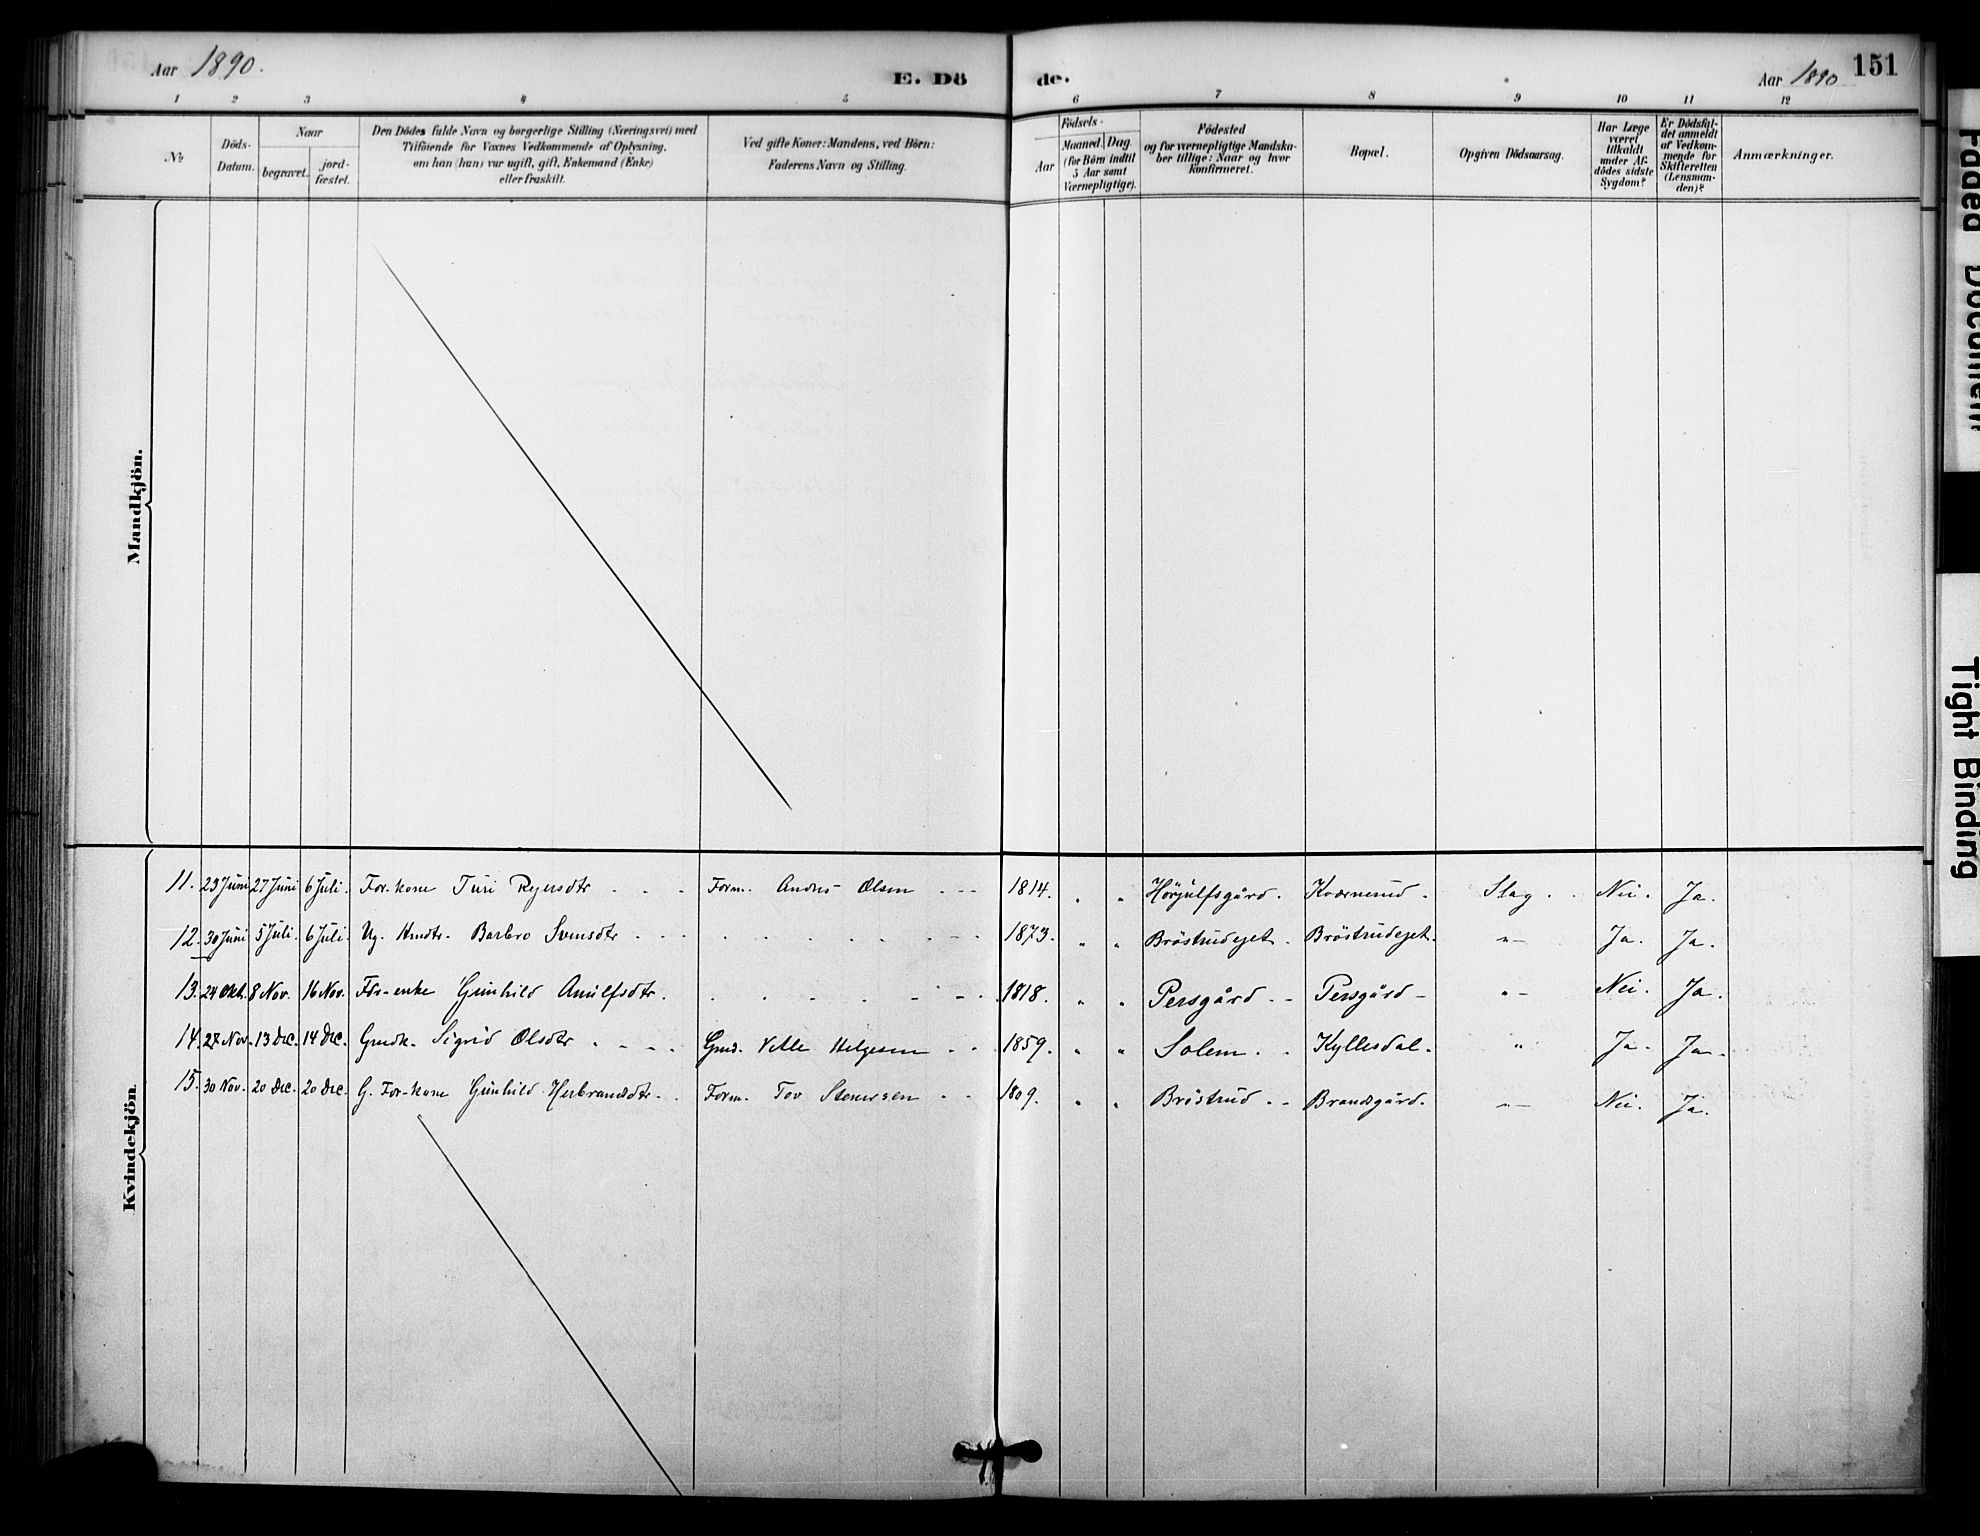 Aar 1890.
E. Dö de.
Aar 1890
151
1 2 3 4 5 6 7 8 9 10 11 12
№
Döds-
Datum.
Naar
begravet.
jord-
fæstet.
Den Dödes fulde Navn og borgerlige Stilling (Næringsvei) med
Tilföiende for Voxnes Vedkommende af Oplysning,
om han (hun) var ugift, gift, Enkemand (Enke)
eller fraskilt.
Ved gifte Koner: Mandens, ved Börn:
Faderens Navn og Stilling.
Födsels-
Aar
Maaned. Dag.
(for Börn indtil
5 Aar samt
Værnepligtige).
Födested
og for værnepligtige Mandska-
ber tillige: Naar og hvor
konfirmeret.
Bopæl.
Opgiven Dödsaarsag.
Har Læge
været
tilkaldt
under Af-
dödes sidste
Sygdom?
Er Dödsfal-
det anmeldt
af Vedkom-
mende for
Skifteretten
(Lensman-
den)?
Anmærkninger.
Mandkjön.
Kvindekjön.
11. 23 Juni 27 Juni 6 Juli. For-kone Turi Reiersdtr - - - Form. Andres Olsen - - - 1814. " " Hörjulfsgård. Kværnerud. Slag. Nei. Ja.
12. 30 Juni 5 Juli. 6 Juli. Ug. Barbro Svensdtr - - - 1873. " " Bröstrudejet. Bröstrudejet. "- Ja. Ja.
13. 24 Okt. 8 Nov. 16 Nov. For-enke Gunhild Arnulfsdtr. 1818. " " Persgård. - Persgård - "- Nei. Ja.
14. 27 Nov. 13 Dec. 14 Dec. Gmdk. Sigrid Olsdtr. - - - Gmd. Helgesen - - 1859. " " Solem. Kyllesdal. " Ja. Ja.
15. 30 Nov. 20 Dec. 20 Dec. G. For-kone Gunhild Herbrandsdtr. - Form. Tov Stenersen - - 1809. " " Bröstrud. - Brandsgård. -"- Nei. Ja.
Faded Document
Tight Binding